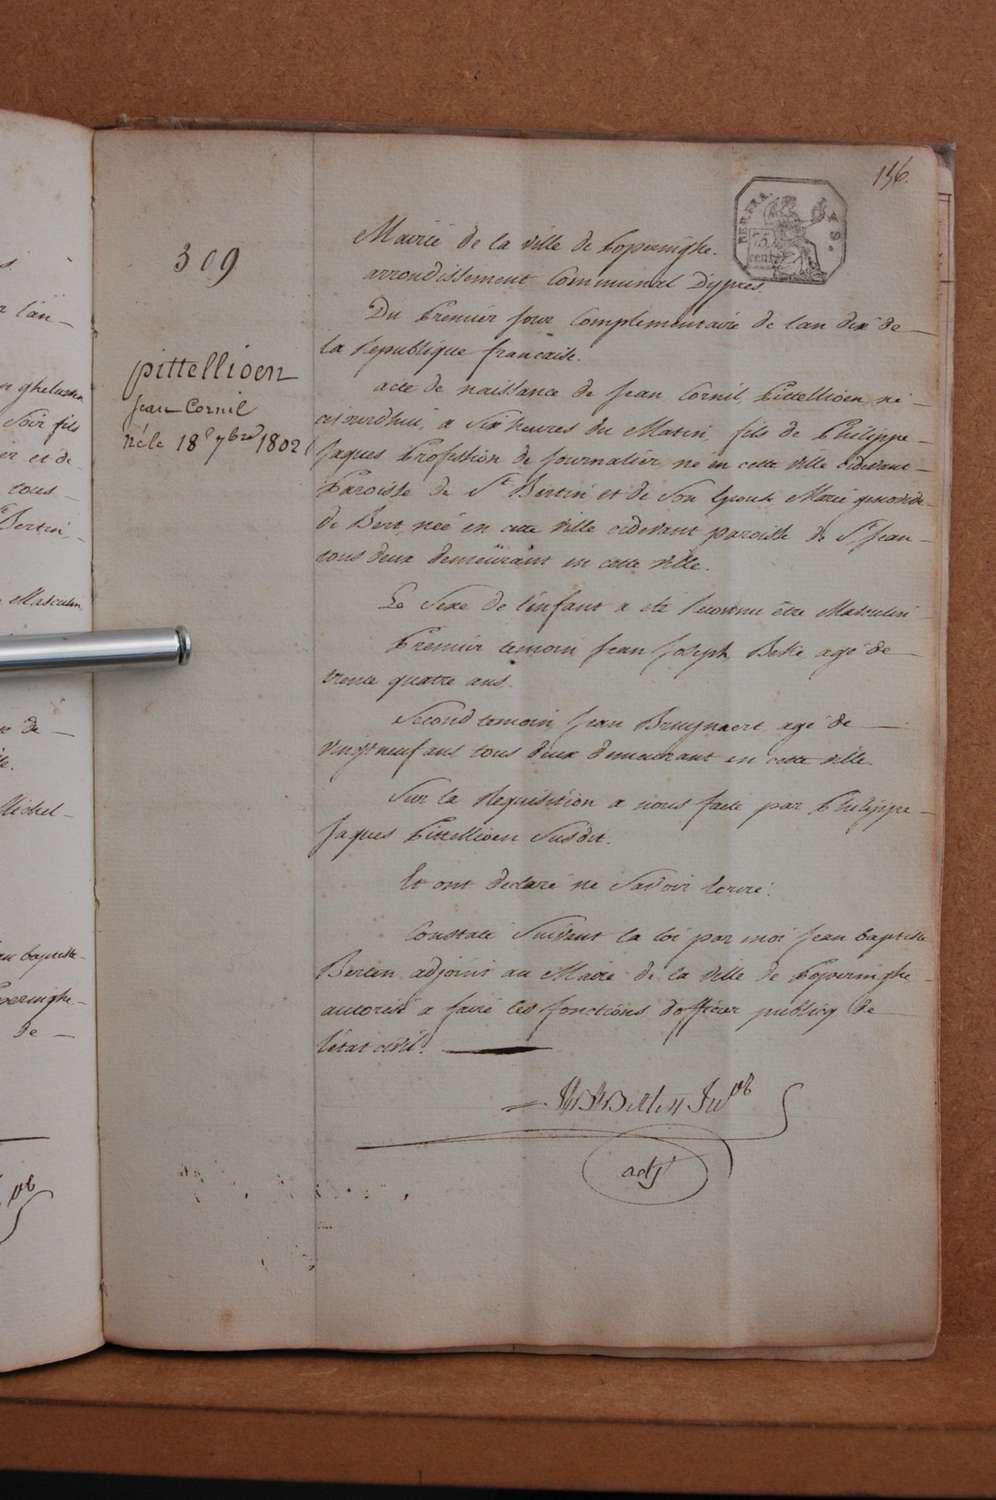 156.
REP. FRA.
75
cent
309
Mairie de la ville de Poperinghe.
arrondissement Communal Dypres.
Du Premier jour Complementaire de lan dix de
la Republique francaise.
pittellioen
Jean Cornil
né le 18e 7bre 1802
acte de naissance de Jean Cornil Pittellioen né
cejourdhui, a Six heures du Matin, fils de Philippe
Jaques Profession de Journalier, né en cette ville cidevant
Paroisse de St Bertin et de Son Epouse Marie genovive
de Bert, née en cette ville cidevant paroisse de St Jean
tous deux demeurant en cette ville.
Le Sexe de l'enfant a eté Reconnu être Masculin
Premier temoin Jean Joseph Bekе agé de
trente quatre ans.
Second temoin Jean Bruynaert agé de
vingt neuf ans tous deux demeurant en cette ville.
Sur la Requisition a nous faite par Philippe
Jaques Pittellioen Susdit.
Et ont declaré ne Savoir Ecrire.
Constaté Suivant la loi par moi Jean baptiste
Berten adjoint au Maire de la ville de Poperinghe
autorisé a faire les fonctions d'officier publicq de
l'état civil.
adjt